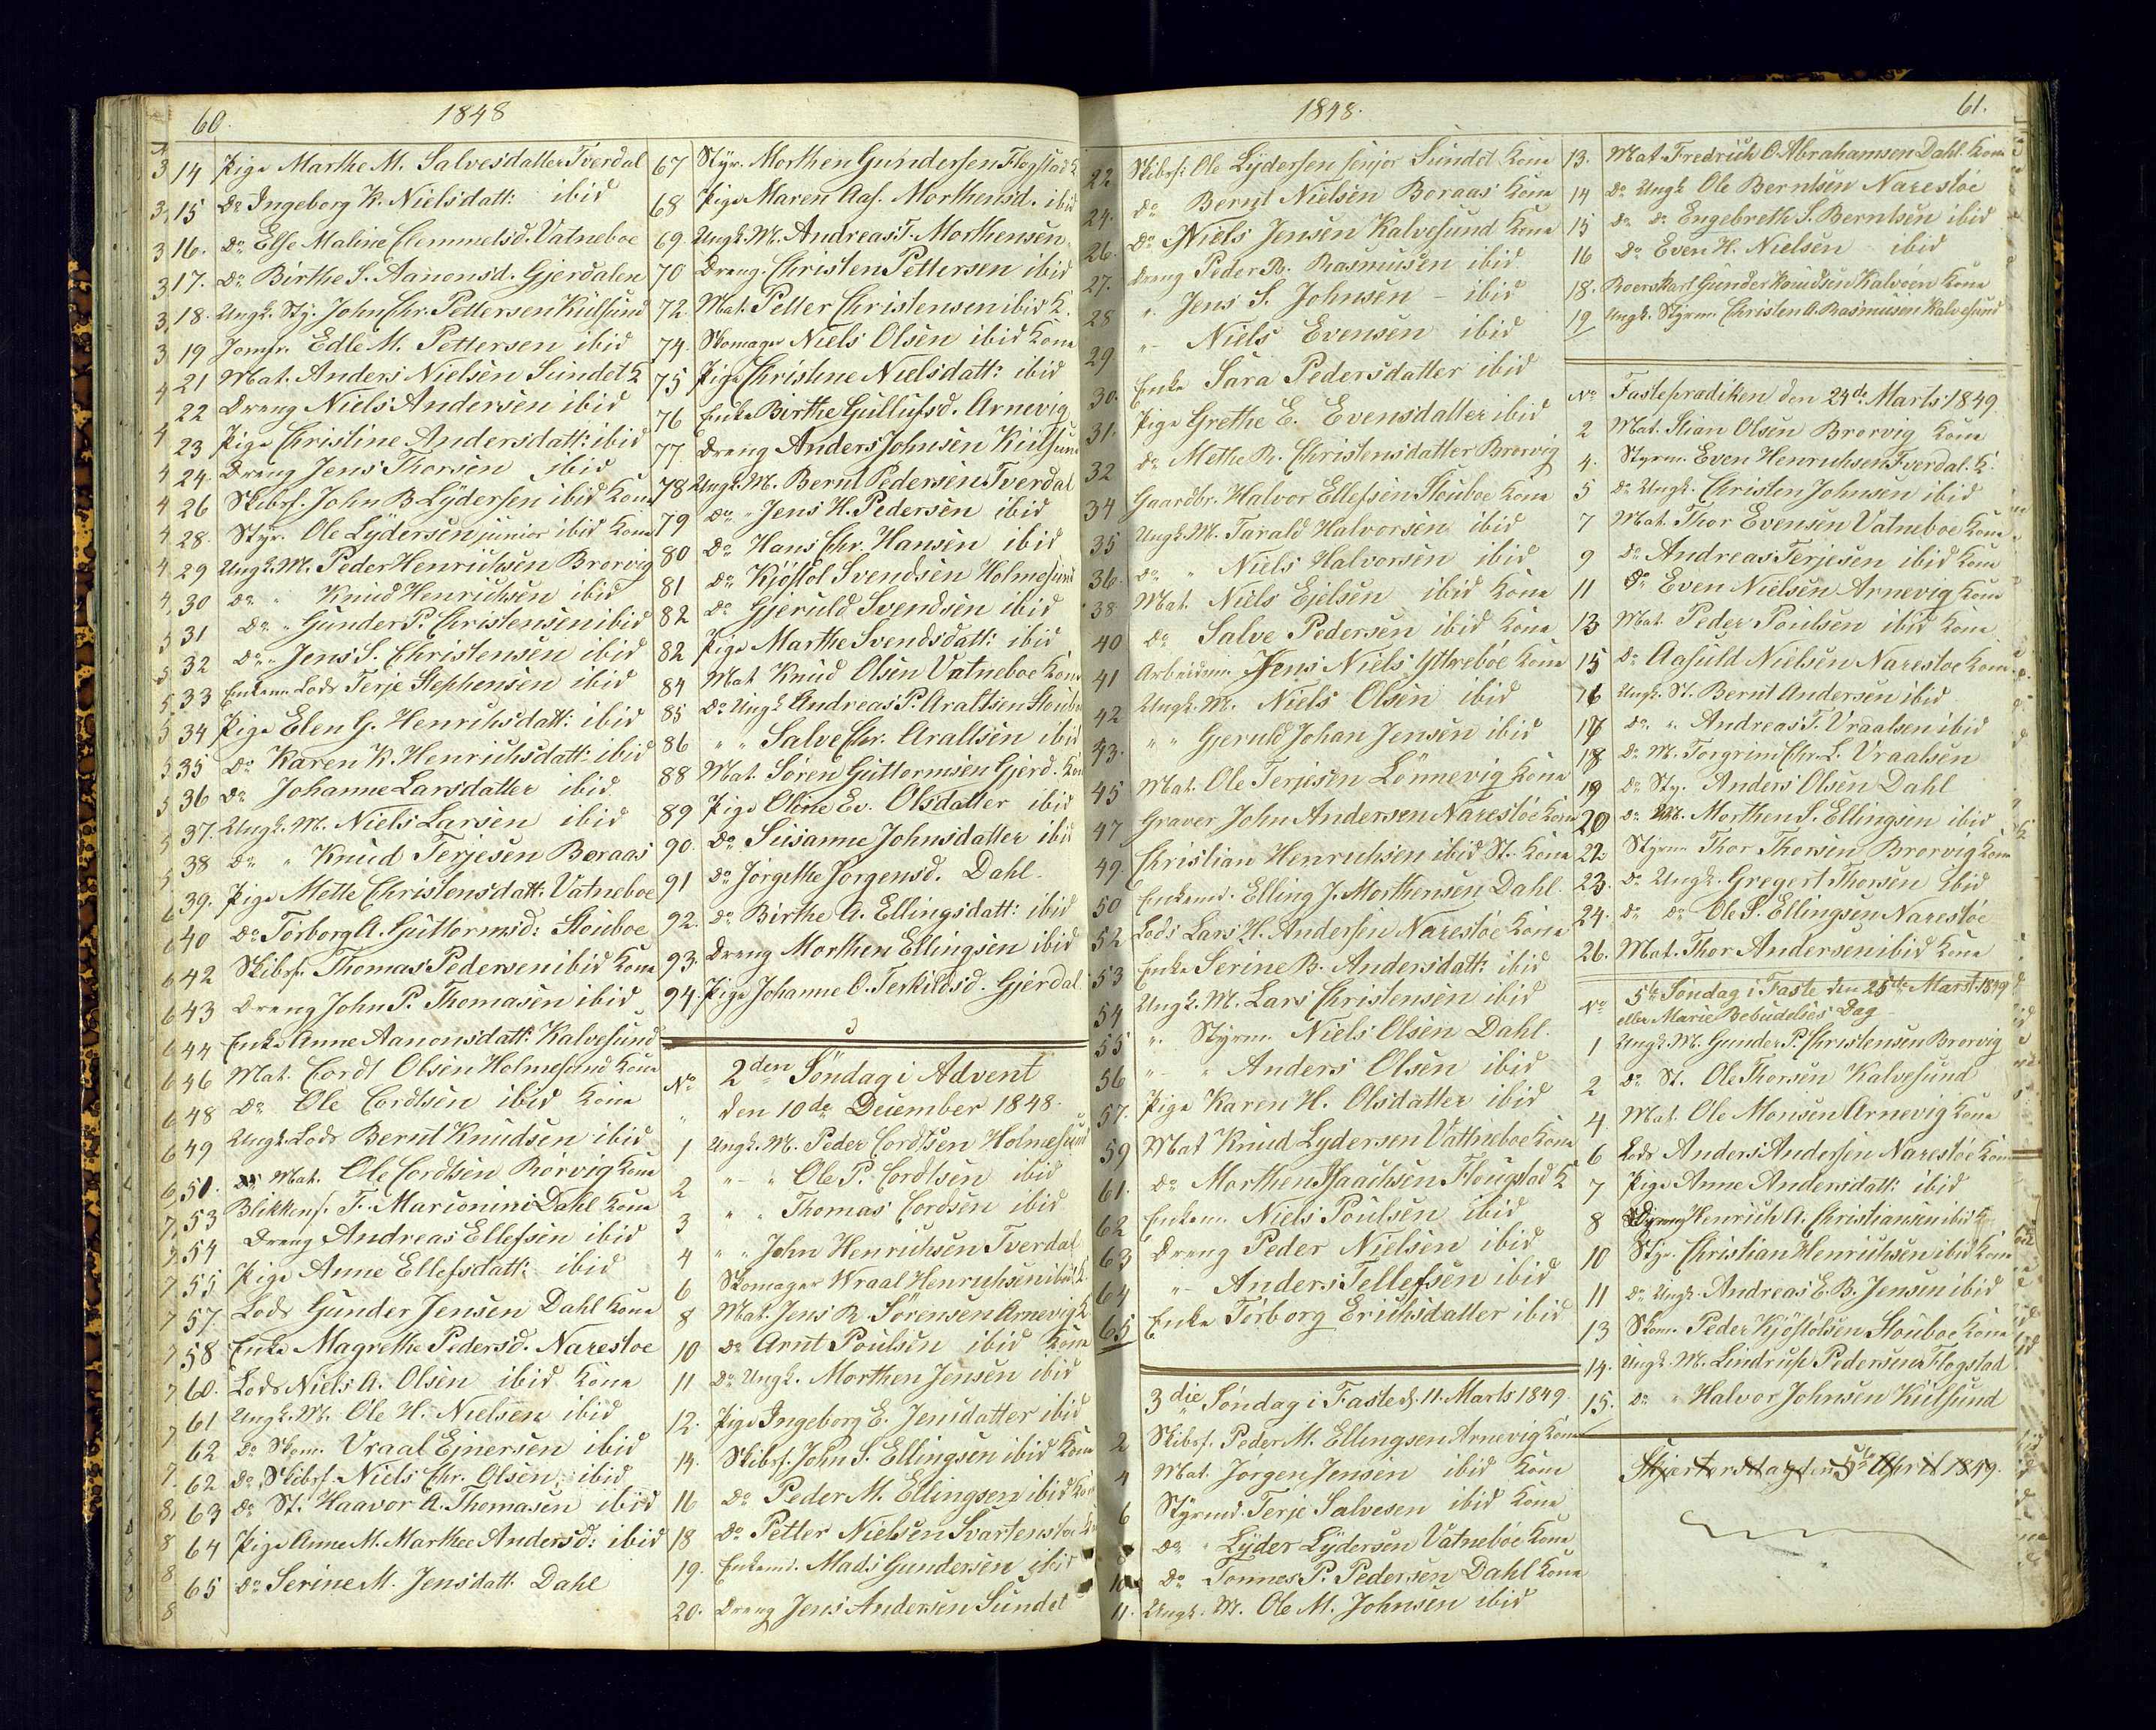 60.
1848
14 Pige Marthe M. Salvesdatter Tverdal
15 Do Ingeborg K. Nielsdatt: ibid
16. Do Else Maline Clemmetsd. Vatneboe
17. Do Birthe S. Aanonsd. Gjerdalen
18. Ungk. Sty. John Chr. Pettersen Kiilsund
19 Jomfr. Edle M. Pettersen ibid
21 Mat. Anders Nielsen Sundet K
22 Dreng Niels Andersen ibid
23 Pige Christine Andersdatt: ibid
24. Dreng Jens Thorsen ibid
26 Skibsf. John B Lydersen ibid Kone
28. Styr. Ole Lydersen junior ibid Kone
29 Ungk. M. Peder Henrichsen Brorvig
30 Do " Knud Henrichsen ibid
31 Do " Gunder P. Christensen ibid
32 Do " Jens S. Christensen ibid
33 Enkem. Lods Terje Stephensen ibid
34 Pige Elen G. Henrichsdatt: ibid
35 Do Karen K. Henrichsdatt: ibid
36 Do Johanne Larsdatter ibid
37. Ungk. M. Niels Larsen ibid
38 Do " Knud Terjesen Boraas
39. Pige Mette Christensdatt: Vatneboe
40 Do Torborg A. Guttormsd: Stouboe
42 Skibsf. Thomas Pedersen ibid Kone
43 Dreng John P. Thomasen ibid
44 Enke Anne Aanonsdatt: Kalvesund
46 Mat. Cordt Olsen Holmesund Kone
48 Do Ole Cordtsen ibid Kone
49 Ungk. Lods Bernt Knudsen ibid
51. Mat. Ole Cordtsen Rörvig Kone
53 Blikkensl. F. Marionini Dahl Kone
54 Dreng Andreas Ellefsen ibid
55 Pige Anne Ellefsdatt: ibid
57. Lods Gunder Jensen Dahl Kone
58 Enke Magrethe Pedersd. Narestoe
60. Lods Niels A. Olsen ibid Kone
61 Ungk. M. Ole H. Nielsen ibid
62 Do Skom. Vraal Einersen ibid
62 Do Skibsf. Niels Chr. Olsen ibid
63 Do St. Haavor A. Thomasen ibid
64 Pige Anne M. Marthee Andersd: ibid
65 Do Serine M. Jensdatt. Dahl
67 Styr. Morthen Gundersen Flogstad K
68 Pige Maren Aas. Morthensd. ibid
69. Ungk. M. Andreas T. Morthensen
70 Dreng. Christen Pettersen ibid
72. Mat. Petter Christensen ibid K.
74. Skomager Niels Olsen ibid Kone
75 Pige Christine Nielsdatt: ibid
76 Enke Birthe Gullufsd. Arnevig
77. Dreng Anders Johnsen Kiilsund
78 Ungk. M. Bernt Pedersen Tverdal
79 Do " Jens H. Pedersen ibid
80 Do Hans Chr. Hansen ibid
81 Do Kjöstol Svendsen Holmesund
82 Do Gjeruld Svendsen ibid
82 Pige Marthe Svendsdatt: ibid
84 Mat Knud Olsen Vatneboe Kone
85 Do Ungk Andreas P. Araltsen Stoubo
86 " " Salve Chr. Araltsen ibid
88 Mat. Sören Guttormsen Gjerd. Kone
89 Pige Oline Ev. Olsdatter ibid
90. Do Susanne Johnsdatter ibid
91 Do Jorgethe Jorgensd. Dahl.
92. Do Birthe A. Ellingsdatt: ibid
93. Dreng Morthen Ellingsen ibid
94. Pige Johanne O. Terkildsd. Gjerdal
No 2den Söndag i Advent
den 10de December 1848.
1 Ungk. M. Peder Cordtsen Holmesund
2 " " Ole P. Cordtsen ibid
3 " " Thomas Cordsen ibid
4 " " John Henrichsen Tverdal
6 Skomager Wraal Henrichsen ibid K.
8 Mat. Jens R. Sörensen Arnevig K
10 Do Arnt Poulsen ibid Kone
11 Do Ungk. Morthen Jensen ibid
12. Pige Ingeborg E. Jensdatter ibid
14. Skibsf. John S. Ellingsen ibid Kone
16 Do Peder M. Ellingsen ibid Kone
18 Do Petter Nielsen Svartenstoe K
19. Enkemd. Mads Gundersen ibid
20. Dreng Jens Andersen Sundet
1848.
61.
22 Skibsf: Ole Lydersen senjor Sundet Kone
24. Do Bernt Nielsen Boraas Kone
26. Do Niels Jensen Kalvesund Kone
27. Dreng Peder R. Rasmusen ibid
28 " Jens S. Johnsen - ibid
29 " Niels Evensen ibid
30. Enke Sara Pedersdatter ibid
31. Pige Grethe E. Evensdatter ibid
32 Do Methe R. Christensdatter Brorvig
34 Gaardbr. Halvor Ellefsen Stouboe Kone
35 Ungk. M. Tarald Halvorsen ibid
36. Do " Niels Halvorsen ibid
38 Mat. Niels Ejelsen ibid Kone
40 Do Salve Pedersen ibid Kone
41 Arbeidsm. Jens Niels. Yttreböe Kone
42 Ungk. M. Niels Olsen ibid
43. " " Gjeruld Johan Jensen ibid
45 Mat. Ole Terjesen Lönnevig Kone
47 Graver John Andersen Narestöe Kone
49. Christian Henrichsen ibid St. Kone
50 Enkemd. Elling J. Morthensen Dahl.
52 Lods Lars H. Andersen Narestöe Kone
53 Enke Serine B. Andersdatt: ibid
54 Ungk. M. Lars Christensen ibid
55 " Styrm. Niels Olsen Dahl.
56 " " Anders Olsen ibid
57. Pige Karen H. Olsdatter ibid
59 Mat Knud Lydersen Vattneboe Kone
61. Do Morthen Isaachsen Flougstad K
62 Enkem. Niels Poulsen ibid
63 Dreng Peder Nielsen ibid
64 " Anders Tellefsen ibid
65 Enke Törborg Erichsdatter ibid
3die Söndag i Faste d. 11. Marts 1849.
2 Skibsf. Peder M. Ellingsen Arnevig Kone
4 Mat. Jorgen Jensen ibid Kone
6 Styrmd. Terje Salvesen ibid Kone
Do " Lyder Lydersen Vatneböe Kone
10 Do Tönnes P. Pedersen Dahl Kone
11. Ungk. M. Ole M. Johnsen ibid
13. Mat. Fredrich O. Abrahamsen Dahl. Kone
14 Do Ungk Ole Berntsen Narestöe
15 Do Do Engebreth S. Berntsen ibid
16 Do Even H. Nielsen ibid
18. Boerskarl Gunder Knudsen Kalvöen Kone
19 Ungk. Styrm. Christen A. Rasmusen Kalvesund
No Fasteprædiken den 24de Marts 1849.
2 Mat. Stian Olsen Brorvig Kone
4. Styrm. Even Henrichsen Tverdal. K.
5 Do Ungk. Christen Johnsen ibid
7 Mat. Thor Evensen Vatneboe Kone
9 Do Andreas Terjesen ibid Kone
11 Do Even Nielsen Arnevig Kone
13 Mat. Peder Poulsen ibid Kone
15 Do Aasuld Nielsen Narestoe Kone
16 Ungk. St. Bernt Andersen ibid
17 Do " Andreas T. Vraalsen ibid
18 Do M. Torgrim Chr. L. Vraalsen
19 Do Sty. Anders Olsen Dahl
20 Do M. Morthen S. Ellingsen ibid
22 Styrm Thor Thorsen Brorvig Kone
23. Do Ungk. Gregert Thorsen ibid
24. Do Do Ole S. Ellingsen Narestöe
26. Mat. Thor Andersen ibid Kone
No 5te Söndag i Faste den 25de Marts 1849
eller Marie Bebudelses Dag
1 Ungk. M. Gunder P. Christensen Brorvig
2 Do St. Ole Thorsen Kalvesund
4 Mat. Ole Monsen Arnevig Kone
6 Lods Anders Andersen Narestöe Kone
7 Pige Anne Andersdatt: ibid
8 Henrich A. Christiansen ibid
10 Styr. Christian Henrichsen ibid Kone
11 Do Ungk. Andreas E. B. Jensen ibid
13 Skom. Peder Kjöstolsen Stouboe Kone
14. Ungk. M. Lindrup Pedersen Flogstad
15. Do " Halvor Johnsen Kiilsund
Skjertorsdag den 5te April 1849.